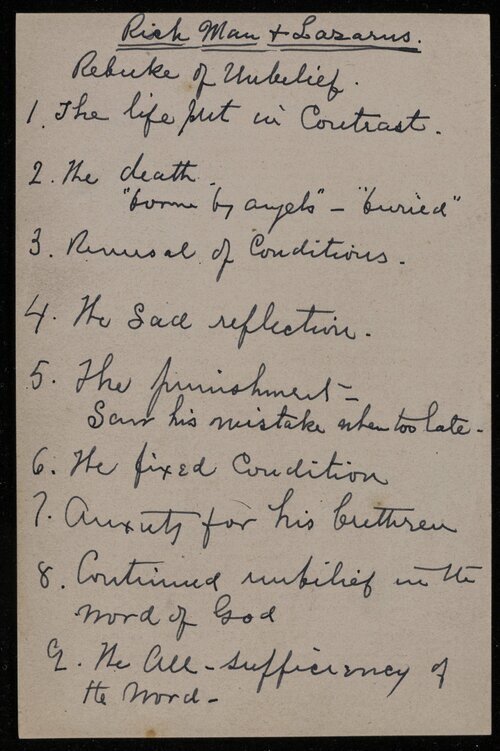 Rich Man + Lazarus.
Rebuke of Unbelief.
1. The life put in Contrast.
2. The death.
"borne by angels" – "buried"
3. Reversal of Conditions.
4. The Sad reflection.
5. The punishment –
Saw his mistake when too late –
6. The fixed Condition
7. Anxiety for his brethren
8. Continued unbelief in the
word of God
9. The All-sufficiency of
the Word –